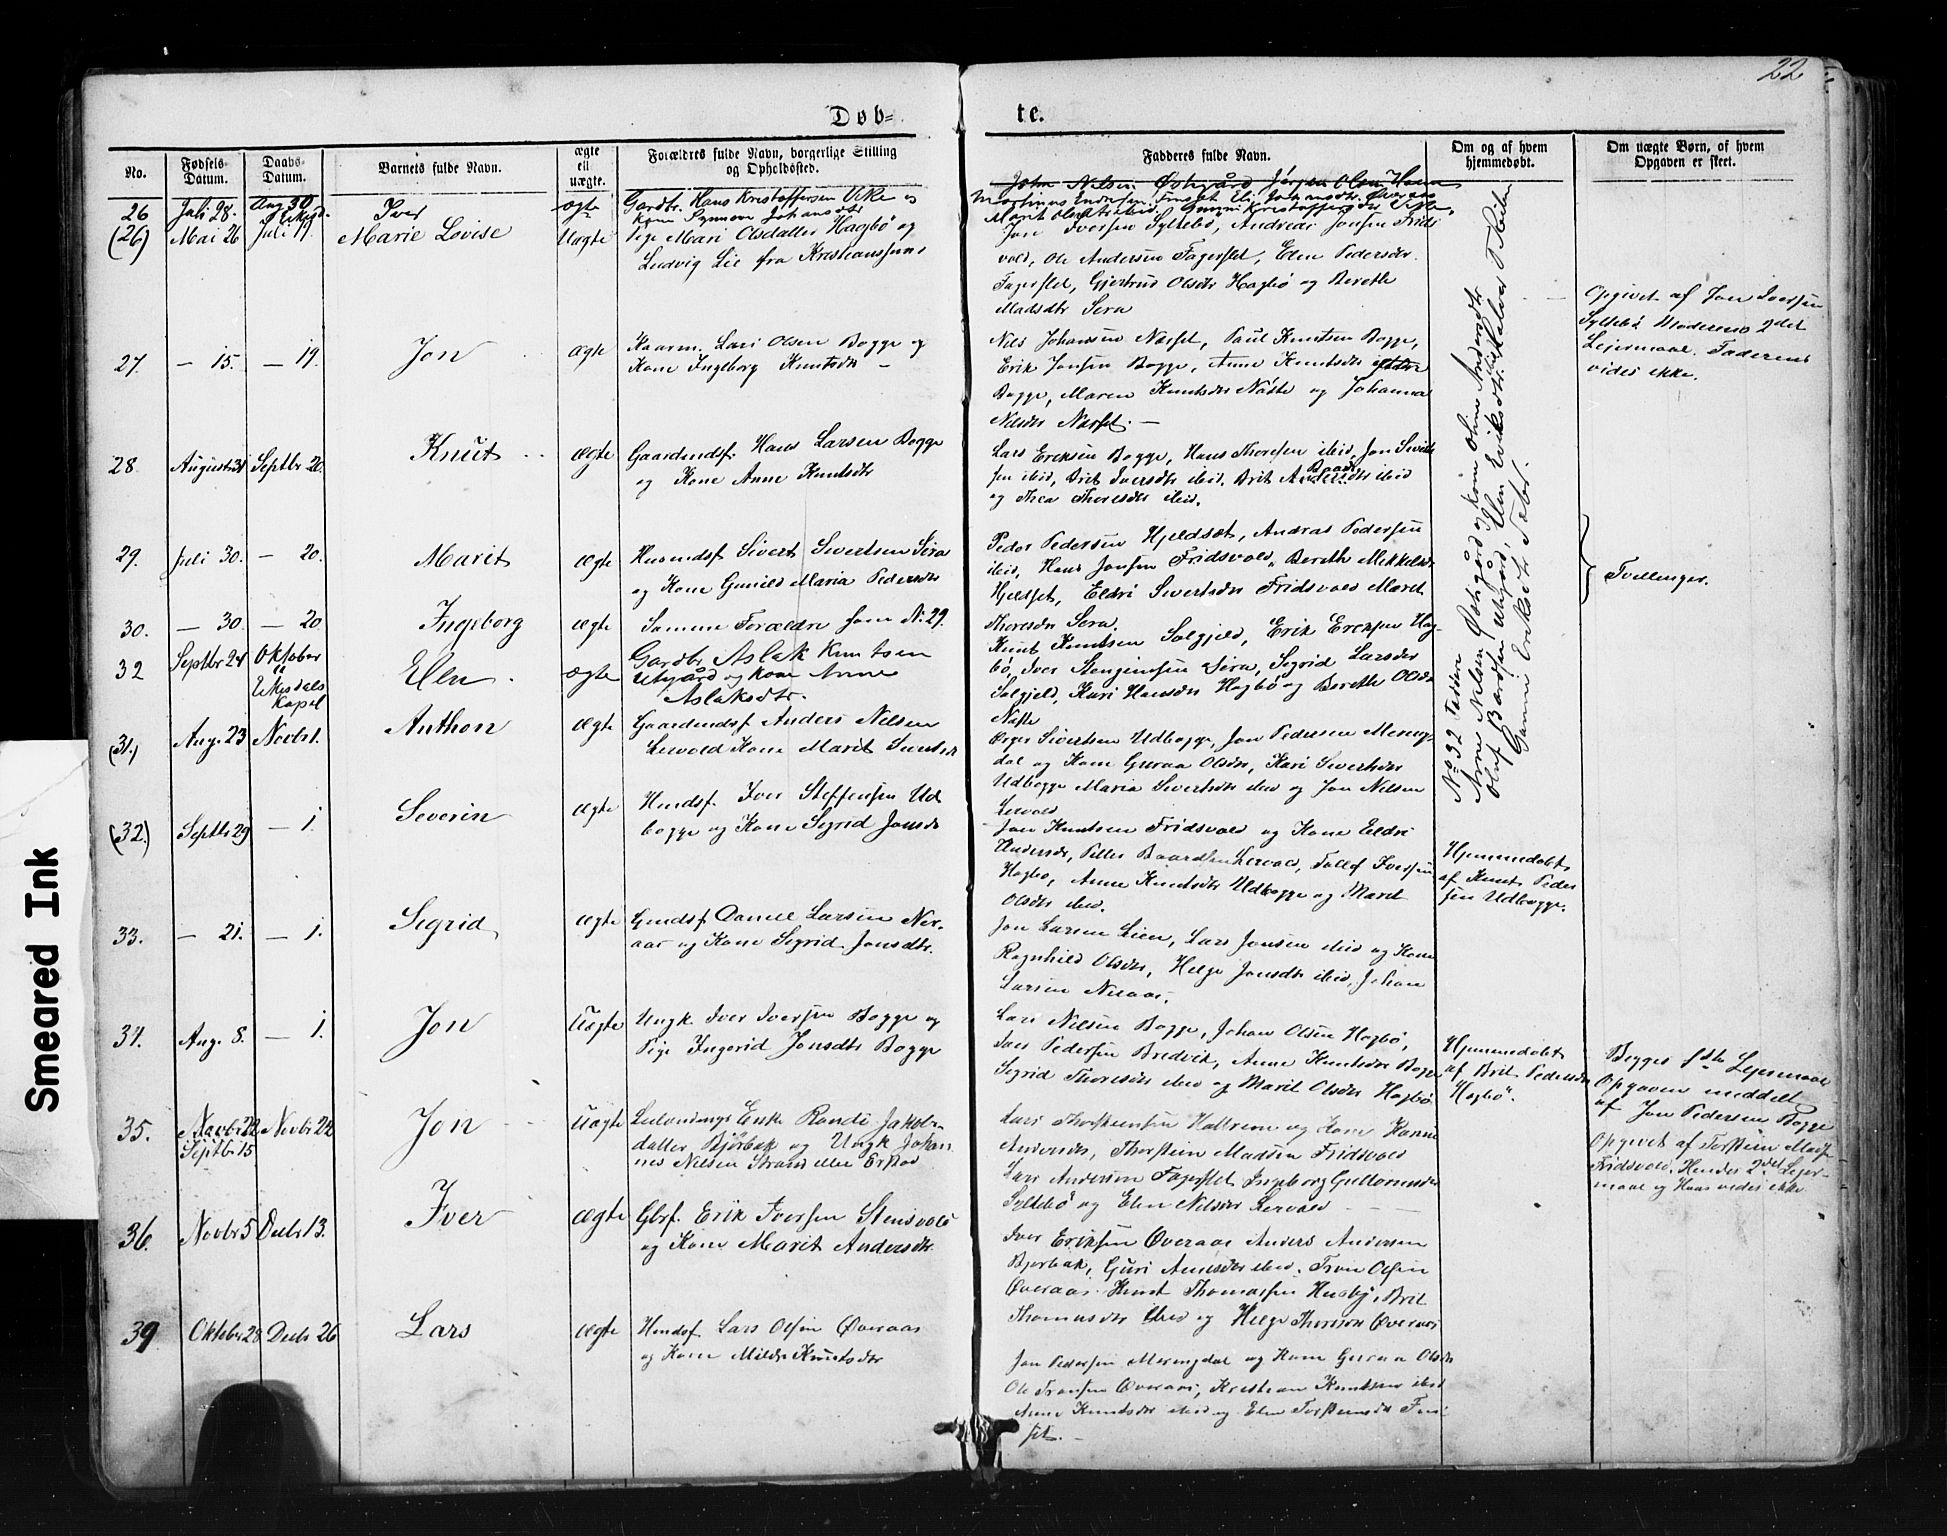 22
Døb=
te.
No.
Fødsels-
Datum.
Daabs-
Datum.
Barnets fulde Navn.
ægte
ell
uægte.
Forældres fulde Navn, borgerlige Stilling
og Opholdssted.
Fadderes fulde Navn.
Om og af hvem
hjemmedøbt.
Om uægte Børn, af hvem
Opgaven er skeet.
26
Juli 28.
Aug 30
Iver
ægte
Gardbr. Hans Kristoffersen Utke og
Kone Synnøve Johansdtr
John Nilsen Østigård Jørgen Olsen
(26)
Mai 26
Juli 19.
Marie Lovise
Uægte
Pige Mari Olsdatter Hagbø og
Ludvig Lie fra Kristianssund
Jon Iversen Syltebø, Andreas Jonsen Frids
vold, Ole Andersen Fagerslet, Elen Pedersdtr.
Fagerslet, Gjertrud Olsdtr Hagbø og Berethe
Madsdtr Sera
Opgivet af Jon Iversen
Syltebø Moderens 2det
Leiermaal. Faderens
vides ikke.
27.
— 15.
— 19.
Jon
Ægte
Kaarm. Lars Olsen Bogge og
Kone Ingeborg Knutsdtr —
Nils Johansen Nerset, Paul Knutsen Bogge,
Erik Jonsen Bogge, Anne Knutsdtr
Bogge, Maren Knutsdtr Nåste og Johanna
Nilsdtr Nerset. —
28.
August 31
Septbr 20.
Knut
Ægte
Gaardmdsf. Hans Larsen Bogge
og Kone Anne Knutsdtr
Lars Eriksen Bogge, Hans Thoresen ibid, Jon Sivert
sen ibid, Brit Iversdtr ibid. Brit Baards
dtr ibid
og Thea Thoresdtr ibid.
29.
Juli 30.
— 20.
Marit
Ægte
Husmdsf Sivert Sivertsen Sira
og Kone Gunild Maria Pedersdtr
Peder Pedersen Hjeldsæt, Andras Pedersen
ibid, Hans Jonsen Fridsvold, Berethe Mikkelsdtr
Hjeldset, Eldri Sivertsdtr Fridsvold Maret
Thoresdtr Sera.
Tvillinger.
30.
— 30.
— 20
Ingeborg
Ægte
Samme Forældre som N. 29.
Knut Knutsen Solgjeld, Erik Ericksen Hag-
bø, Iver Stengrimsen Sera, Segrid Larsdtr
Solgjeld, Kari Hansdtr Hagbø og Berethe Olsdtr
Nåste
32
Septbr 24
Oktober
i
Eikisdals
Kapel
Ellen
Ægte
Gardbr Aslak Knutsen
Utigård og kone Anne
Aslaksdtr.
No 32 Faddere
Arne Nilsen Østigård og kone Oline Andersdtr
Oluf Bårdsen Utigård, Elen Eriksdtr
(31.)
Aug. 23
Novbr 1.
Anthon
Ægte
Gaardmdsf Anders Nilsen
Lervold Kone Marit
Sivertsen Udbogge, Jon Pedersen Mering-
dal og Kone Guraa Olsdtr, Kari Sivertsdtr
Udbogge Maria Sivertsdtr ibid og Jon Nilsen
Lervold
(32.)
Septbr 29
— 1.
Severin
Ægte
Hmdsf. Iver Steffensen Ud
bogge og Kone Sigrid Jonsdtr
Jon Knutsen Fridsvold og Kone Eldri
Andersdtr, Petter Baardsen Lervold, Tollef Iversen
Hagbø, Anne Knutsdtr Udbogge og Marit
Olsdtr ibid.
Hjemmedøbt
af Knut Peder
sen Udbogge.
33.
— 21.
— 1.
Segrid
Ægte
Gmdsf. Daniel Larsen Ner-
aas og Kone Segrid Jonsdtr.
Jon Larsen Lien, Lars Jonsen ibid og Kone
Ragnhild Olsdtr, Helge Jonsdtr ibid, Johan
Larsen Neraas.
34.
Aug. 8.
— 1.
Jon
Uægte
Ungk. Iver Iversen Bogge og
Pige Ingerid Jonsdtr Bogge
Lars Nilsen Bogge, Johan Olsen Hagbø,
Lars Pedersen Bredvik, Anne Knutsdtr Bogge
Segrid Thoresdtr ibid og Marit Olsdtr Hagbø
Hjemmedøbt
af Brit Pedersdtr
Hagbø.
Begges 1ste Leiermaal
Opgaven meddelt
af Jon Pedersen Bogge
35.
Novbr 22
Septbr 15
Novbr 22
Jon
Uægte
Enke Randi Jakobs-
datter Bjørbak og Ungk Johan-
nes Nilsen Strand eller
Lars Thorstensen Hattrem og Kone Karen
Andersdtr, Thorstein Madsen Fridsvold
Lars Andersen Fagerslet Ingeborg Guttormsdtr
Syltebø og Elen Nilsdtr Lervold
Opgivet af Torstein Mads.
Fridsvold. Hendes 2det Leier-
maal og Hans vides ikke
36.
Novbr 5
Decbr 13.
Iver
Ægte
Gbrf. Erik Iversen Stensvold
og Kone Marit Andersdtr.
Iver Eriksen Øveraas Anders Andersen
Bjørbak, Guri Arnesdtr ibid. Tron Olsen
Øveraas. Knut Thomassen Husby, Brit
Thomasdtr ibid og Helge Thorsdtr Øveraas
39
Oktober 28
Decbr 26
Lars
Ægte
Hmdsf Lars Olsen Øveraas
og Kone Mildri Knutsdtr
Jon Pedersen Meringdal og Kone Guraa Olsdtr
Ole Tronsen Øveraas, Kristian Knutsen ibid
Anne Knutsdtr ibid og Elen Torsteinsdtr Fin
set. —
Smeared Ink